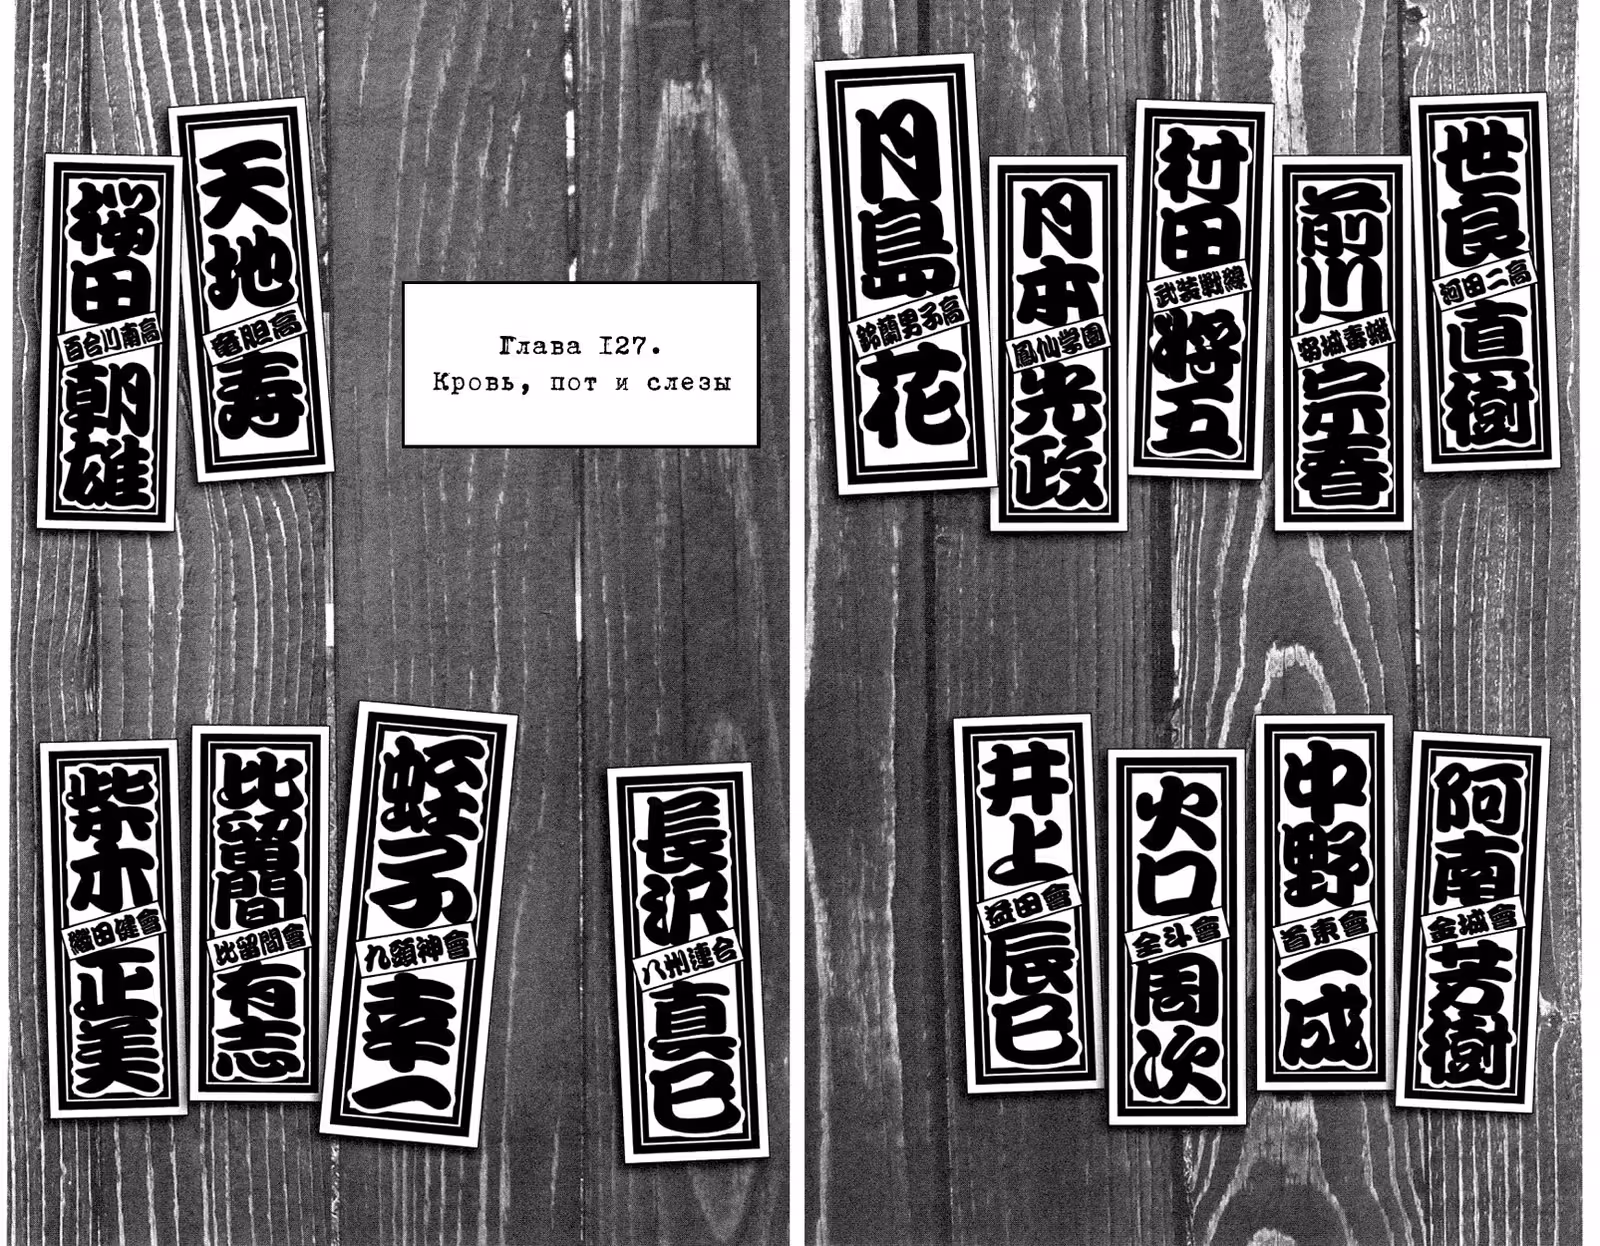 世良
河田二高
直樹
前川
宗春
村田
武装戦線
将五
月本
鳳仙学園
光政
月島
鈴蘭男子高
花
Глава 127.
Кровь, пот и слезы
天地
竜胆高
寿
桜田
百合川南高
朝雄
阿南
金城會
芳樹
中野
首東會
一成
火口
全斗會
周次
井上
益田會
辰巳
長沢
八州連合
真巳
蛭子
九頭神會
幸一
比留間
比留間會
有志
柴木
磯田健會
正美